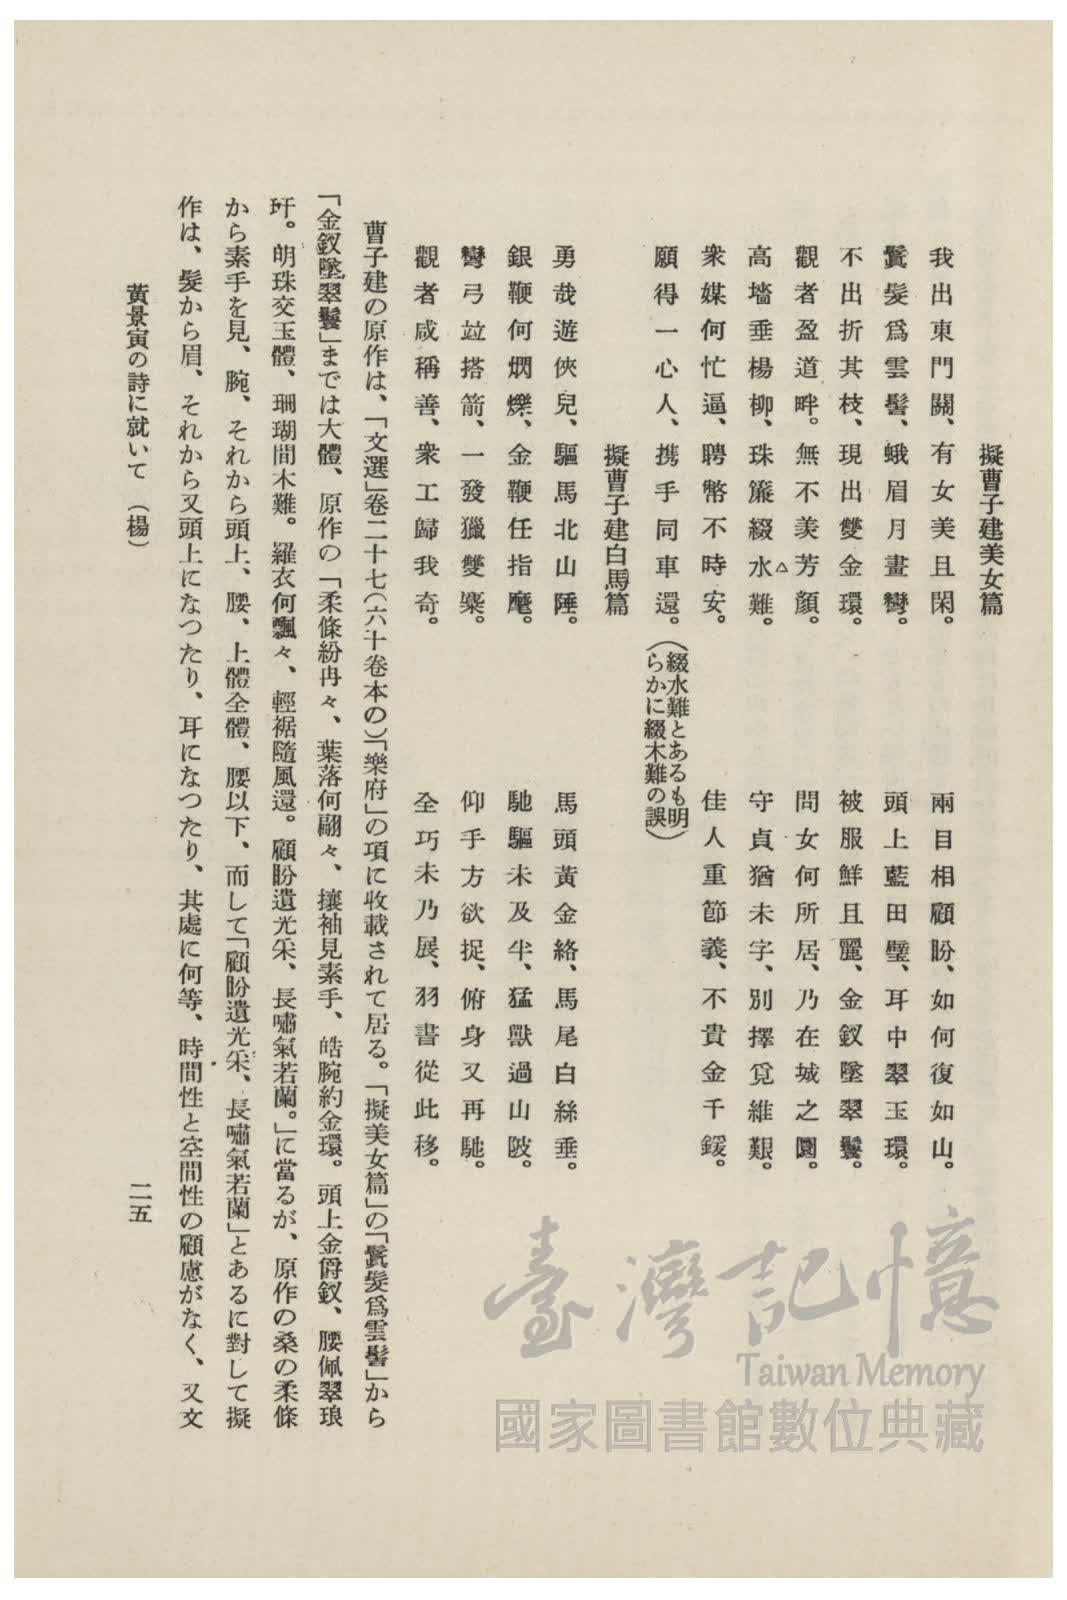 擬曹子建美女篇
我出東門關、有女美且閑。 兩目相顧盼、如何復如山。
鬒髮爲雲髻、蛾眉月畫彎。 頭上藍田璧、耳中翠玉環。
不出折其枝、現出雙金環。 被服鮮且麗、金釵墜翠鬟。
觀者盈道畔。無不羨芳顏。 問女何所居、乃在城之圜。
高墻垂楊柳、珠簾綴水△難。 守貞猶未字、別擇覓維艱。
衆媒何忙逼、聘幣不時安。 佳人重節義、不貴金千鍰。
願得一心人、携手同車還。(綴水難とあるも明
らかに綴木難の誤)
擬曹子建白馬篇
勇哉遊俠兒、驅馬北山陲。 馬頭黃金絡、馬尾白絲垂。
銀鞭何燜爍、金鞭任指麾。 馳驅未及半、猛獸過山陂。
彎弓竝搭箭、一發獵雙麋。 仰手方欲捉、俯身又再馳。
觀者咸稱善、衆工歸我奇。 全巧未乃展、羽書從此移。
曹子建の原作は、「文選」卷二十七(六十卷本の)「樂府」の項に收載されて居る。「擬美女篇」の「鬒髮爲雲髻」から
「金釵墜翠鬟」までは大體、原作の「柔條紛冉々、葉落何翩々、攘袖見素手、皓腕約金環。頭上金爵釵、腰佩翠琅
玕。明珠交玉體、珊瑚間木難。羅衣何飄々、輕裾隨風還。顧盼遺光采、長嘯氣若蘭。」に當るが、原作の桑の柔條
から素手を見、腕、それから頭上、腰、上體全體、腰以下、而して「顧盼遺光采、長嘯氣若蘭」とあるに對して擬
作は、髮から眉、それから又頭上になつたり、耳になつたり、其處に何等、時間性と空間性の顧慮がなく、又文
黃景寅の詩に就いて (楊)
二五
臺灣記憶
Taiwan Memory
國家圖書館數位典藏